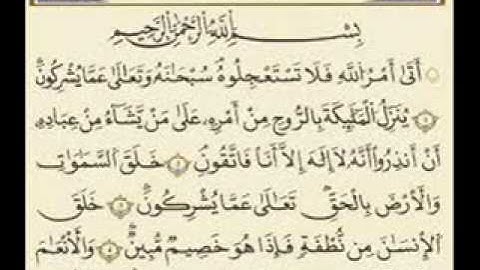 بِسْمِ اللَّهِ الرَّحْمَٰنِ الرَّحِيمِ
أَتَىٰ أَمْرُ اللَّهِ فَلَا تَسْتَعْجِلُوهُ سُبْحَانَهُ وَتَعَالَىٰ عَمَّا يُشْرِكُونَ
١ يُنَزِّلُ الْمَلَائِكَةَ بِالرُّوحِ مِنْ أَمْرِهِ عَلَىٰ مَنْ يَشَاءُ مِنْ عِبَادِهِ
أَنْ أَنْذِرُوا أَنَّهُ لَا إِلَٰهَ إِلَّا أَنَا فَاتَّقُونِ ٢ خَلَقَ السَّمَاوَاتِ
وَالْأَرْضَ بِالْحَقِّ تَعَالَىٰ عَمَّا يُشْرِكُونَ ٣ خَلَقَ
الْإِنْسَانَ مِنْ نُطْفَةٍ فَإِذَا هُوَ خَصِيمٌ مُبِينٌ ٤ وَالْأَنْعَامَ